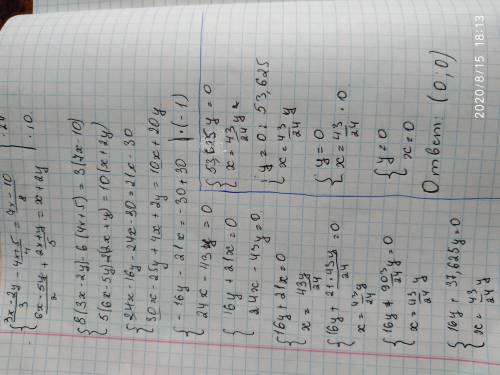 { (3x-2y)/3 - (4x+5)/4 = (7x-10)/8 | ·24
{ (6x-5y)/2 + (2x+y)/5 = x+2y | ·10
{ 8(3x-2y)-6(4x+5)=3(7x-10)
{ 5(6x-5y)+2(2x+y)=10(x+2y)
{ 24x-16y-24x-30=21x-30
{ 30x-25y+4x+2y=10x+20y
{ -16y-21x=-30+30 | ·(-1)
{ 24x-43y=0
{ 16y+21x=0
{ 24x-43y=0
{ 16y+21x=0
{ x=43y/24
{ 16y+21·43y/24=0
{ x=43/24 y
{ 16y+903/24 y=0
{ x=43/24 y
{ 16y+37,625y=0
{ x=43/24 y
{ 53,625y=0
{ x=43/24 y
{ y=0:53,625
{ x=43/24 y
{ y=0
{ x=43/24·0
{ y=0
{ x=0
Ответ: (0;0)
2020/8/15 18:13